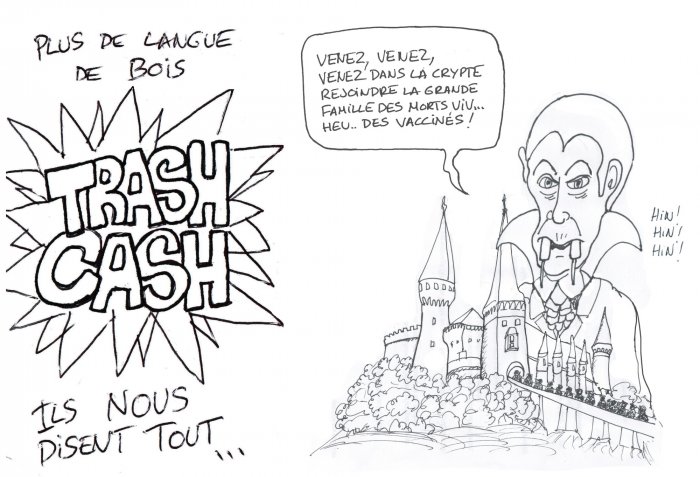 PLUS DE LANGUE
DE BOIS
TRASH
CASH
ILS NOUS
DISENT TOUT...
VENEZ, VENEZ,
VENEZ DANS LA CRYPTE
REJOINDRE LA GRANDE
FAMILLE DES MORTS VIV...
HEU.. DES VACCINÉS !
HIN!
HIN!
HIN!